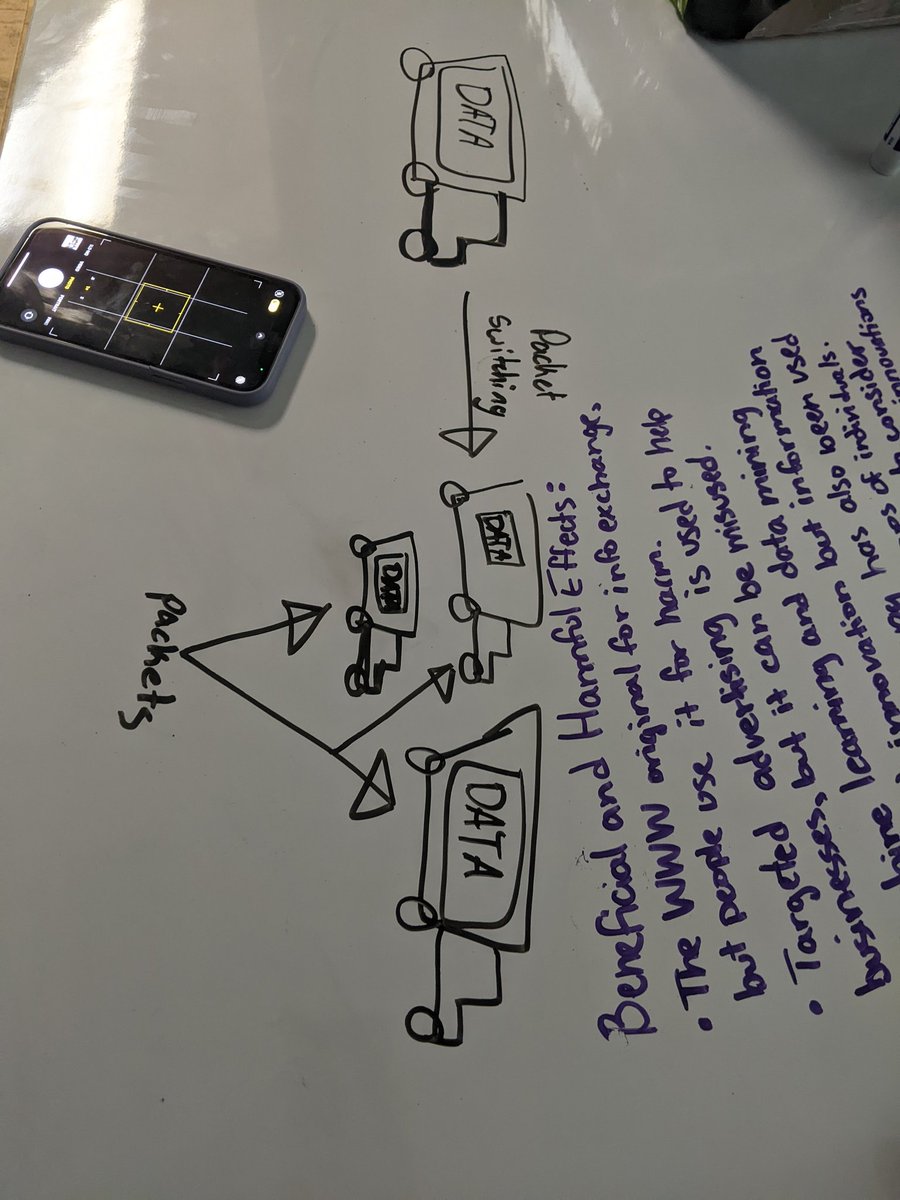 DATA
Packet
switching
DATA
DATA
DATA
Packets
Beneficial and Harmful Effects:
• The WWW original for info exchange,
but people use it for harm.
• Targeted advertising is used to help
bussinesses, but it can be misused.
learning and data mining
innovation but information
has also been used
of individuals.
to consider
innovations